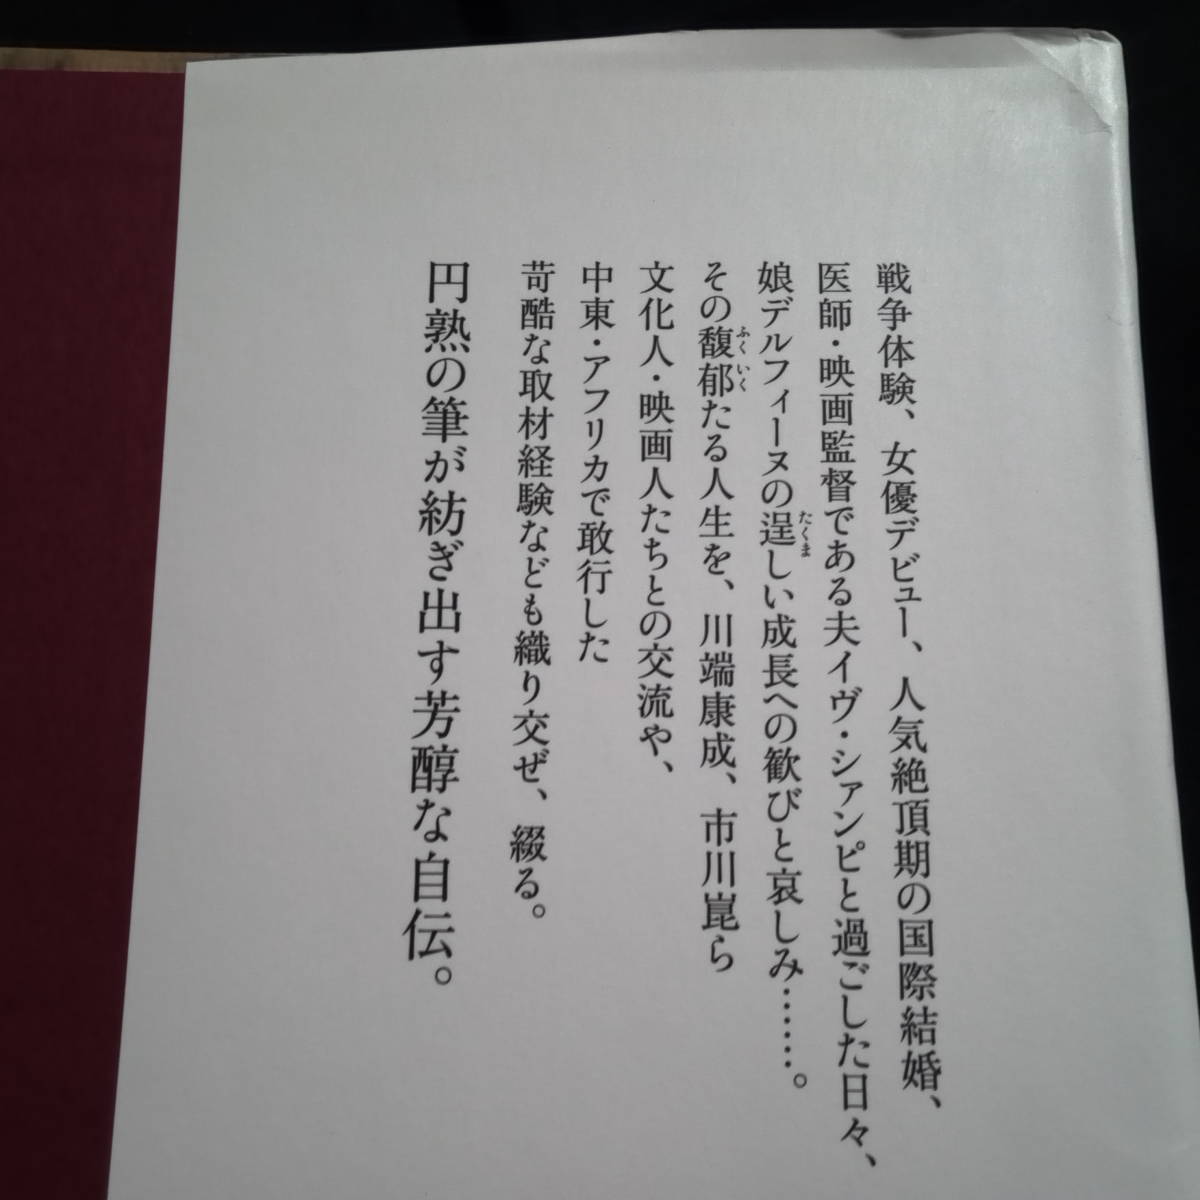 戦争体験、女優デビュー、人気絶頂期の国際結婚、
医師・映画監督である夫イヴ・シァンピと過ごした日々、
娘デルフィーヌの逞しい成長への歓びと哀しみ……。
たくま
その馥郁たる人生を、川端康成、市川崑ら
ふくいく
文化人・映画人たちとの交流や、
中東・アフリカで敢行した
苛酷な取材経験なども織り交ぜ、綴る。
円熟の筆が紡ぎ出す芳醇な自伝。